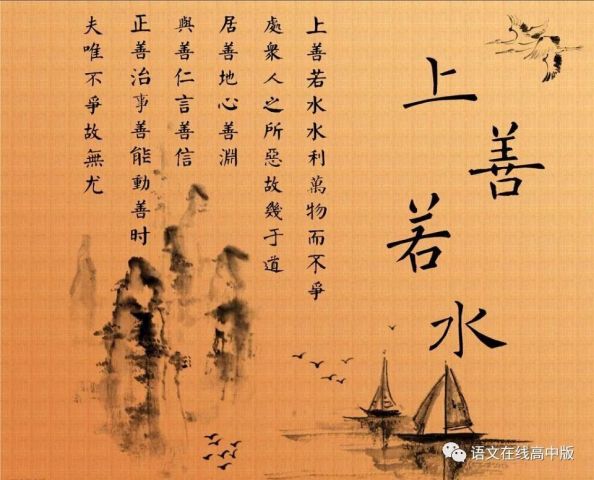 上善若水
上善若水水利萬物而不爭
處衆人之所惡故幾于道
居善地心善淵
與善仁言善信
正善治事善能動善时
夫唯不爭故無尤
语文在线高中版